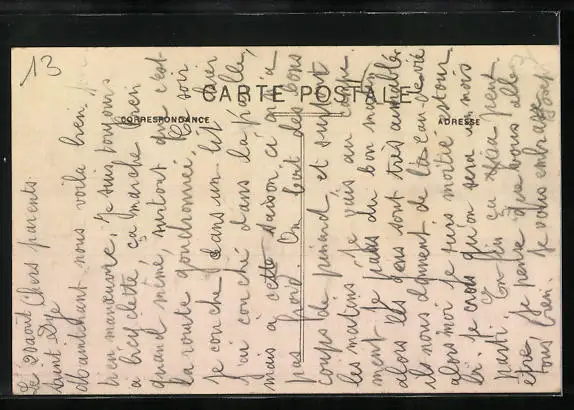 13
CARTE POSTALE
CORRESPONDANCE
ADRESSE
Le 20 août Chers parents.
Saint Dyé
Maintenant nous voila bien
en manœuvre, je suis toujours
a bicyclette ça marche bien
quand même surtout que c'est
la route goudronnée. Ce soir
je couche dans un lit hier
j'ai couché dans la paille,
mais a cette saison ci on a
pas froid. On boit des bons
coups de pinard et surtout
les matins je vais au camp
ment je pars du bon matin
alors les gens sont très aimable
ils nous donnent de l'eau de vie
alors moi je suis moitié saoûl
la. je crois qu'on sera un mois
parti enfin ça peut
être je pense que vous allez
tous bien je vous embrasse